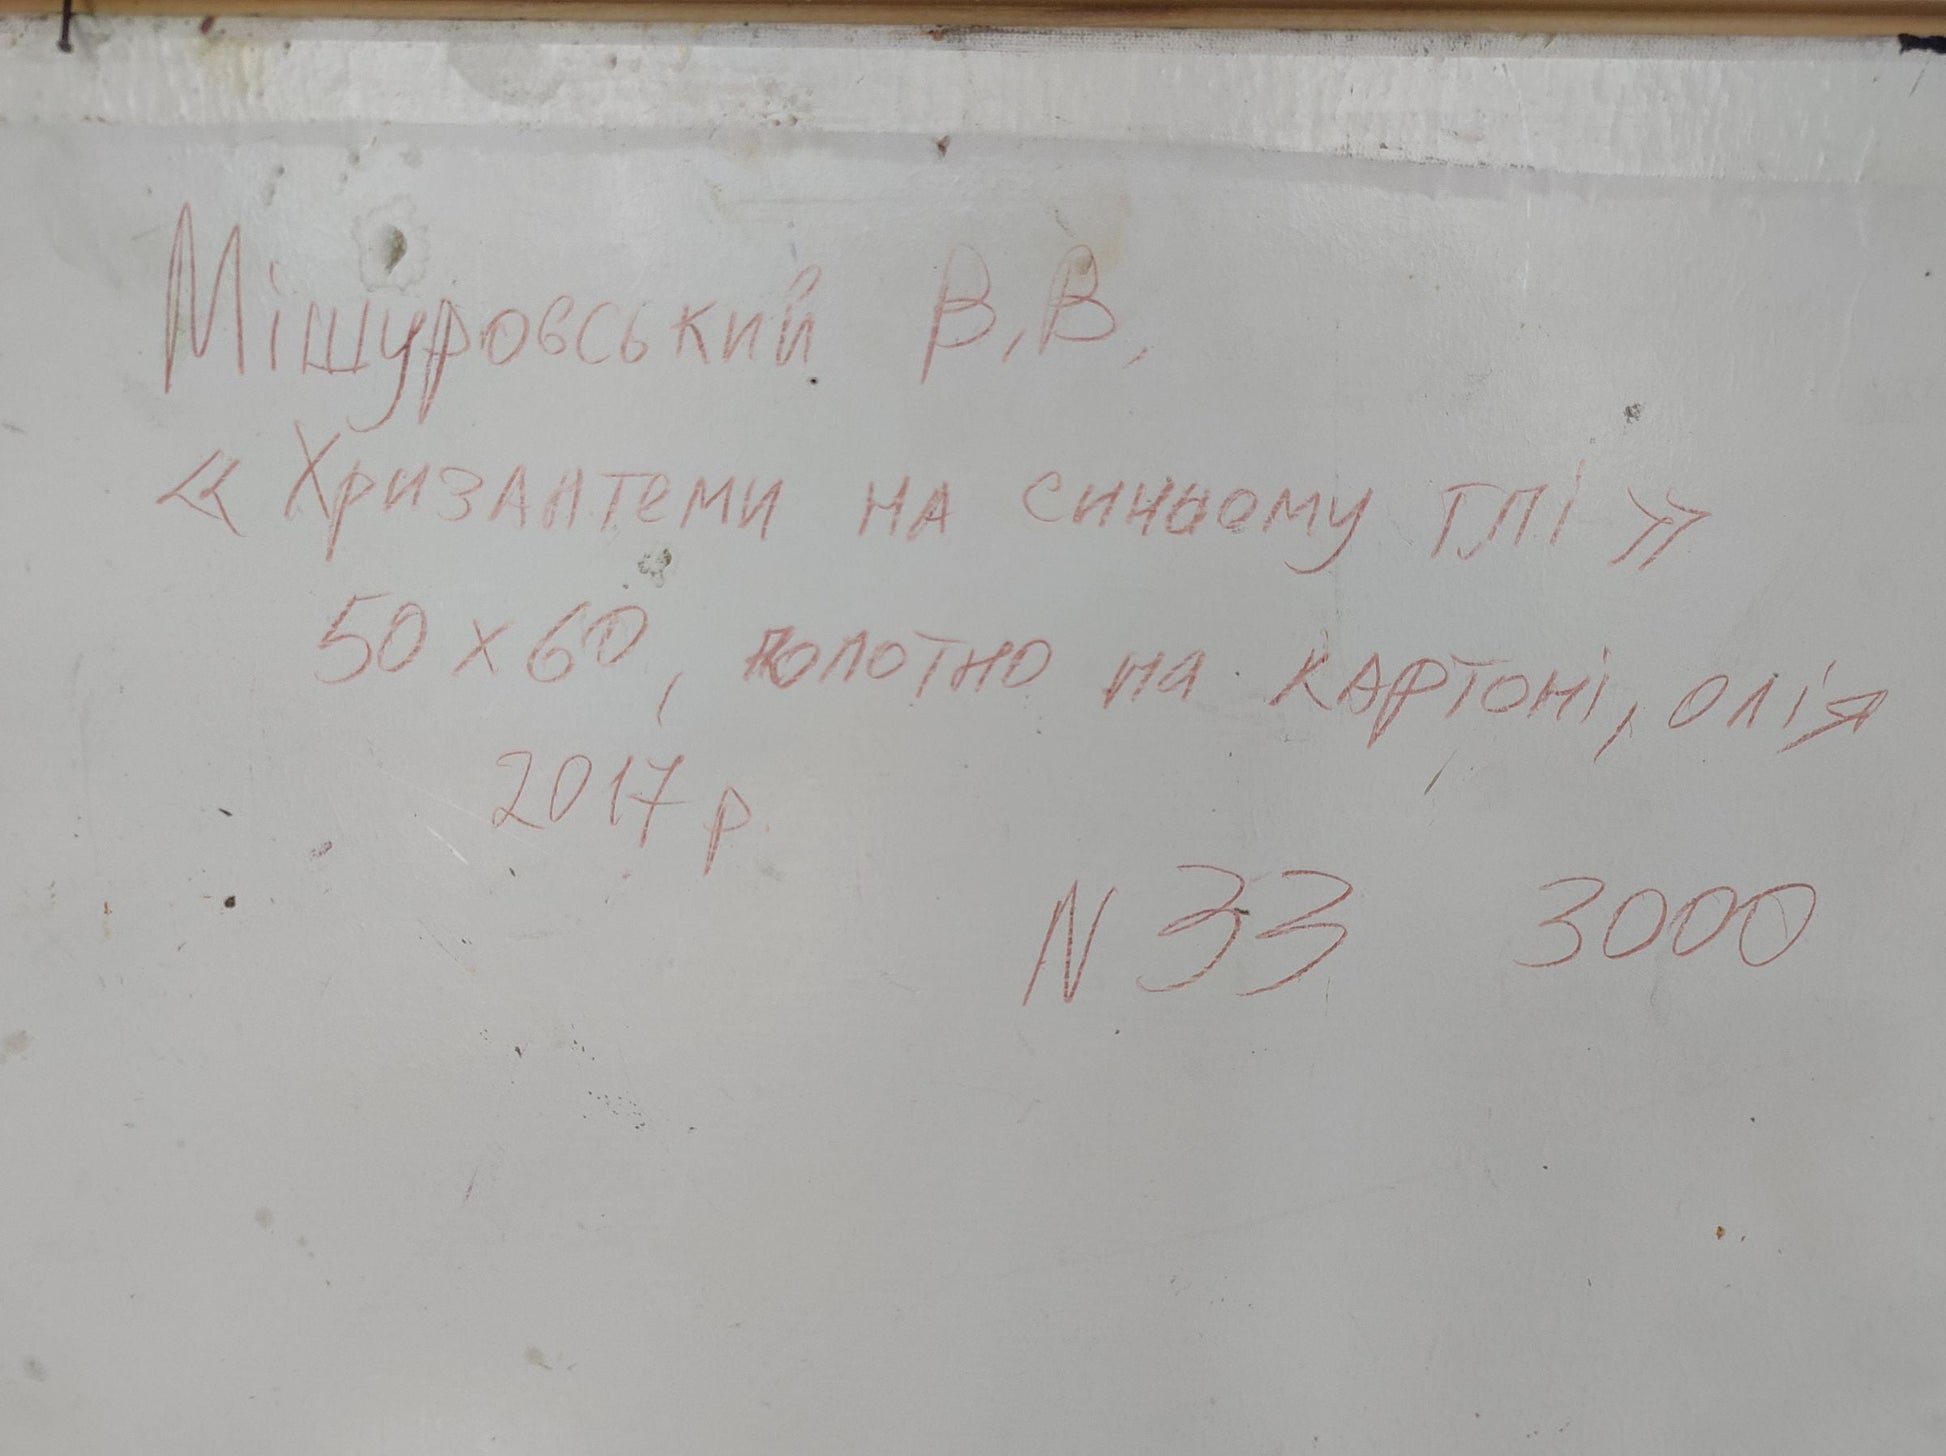 Мішуровський В.В.
«Хризантеми на синьому тлі»
50 х 60, полотно на картоні, олія
2017 р
N 33 3000